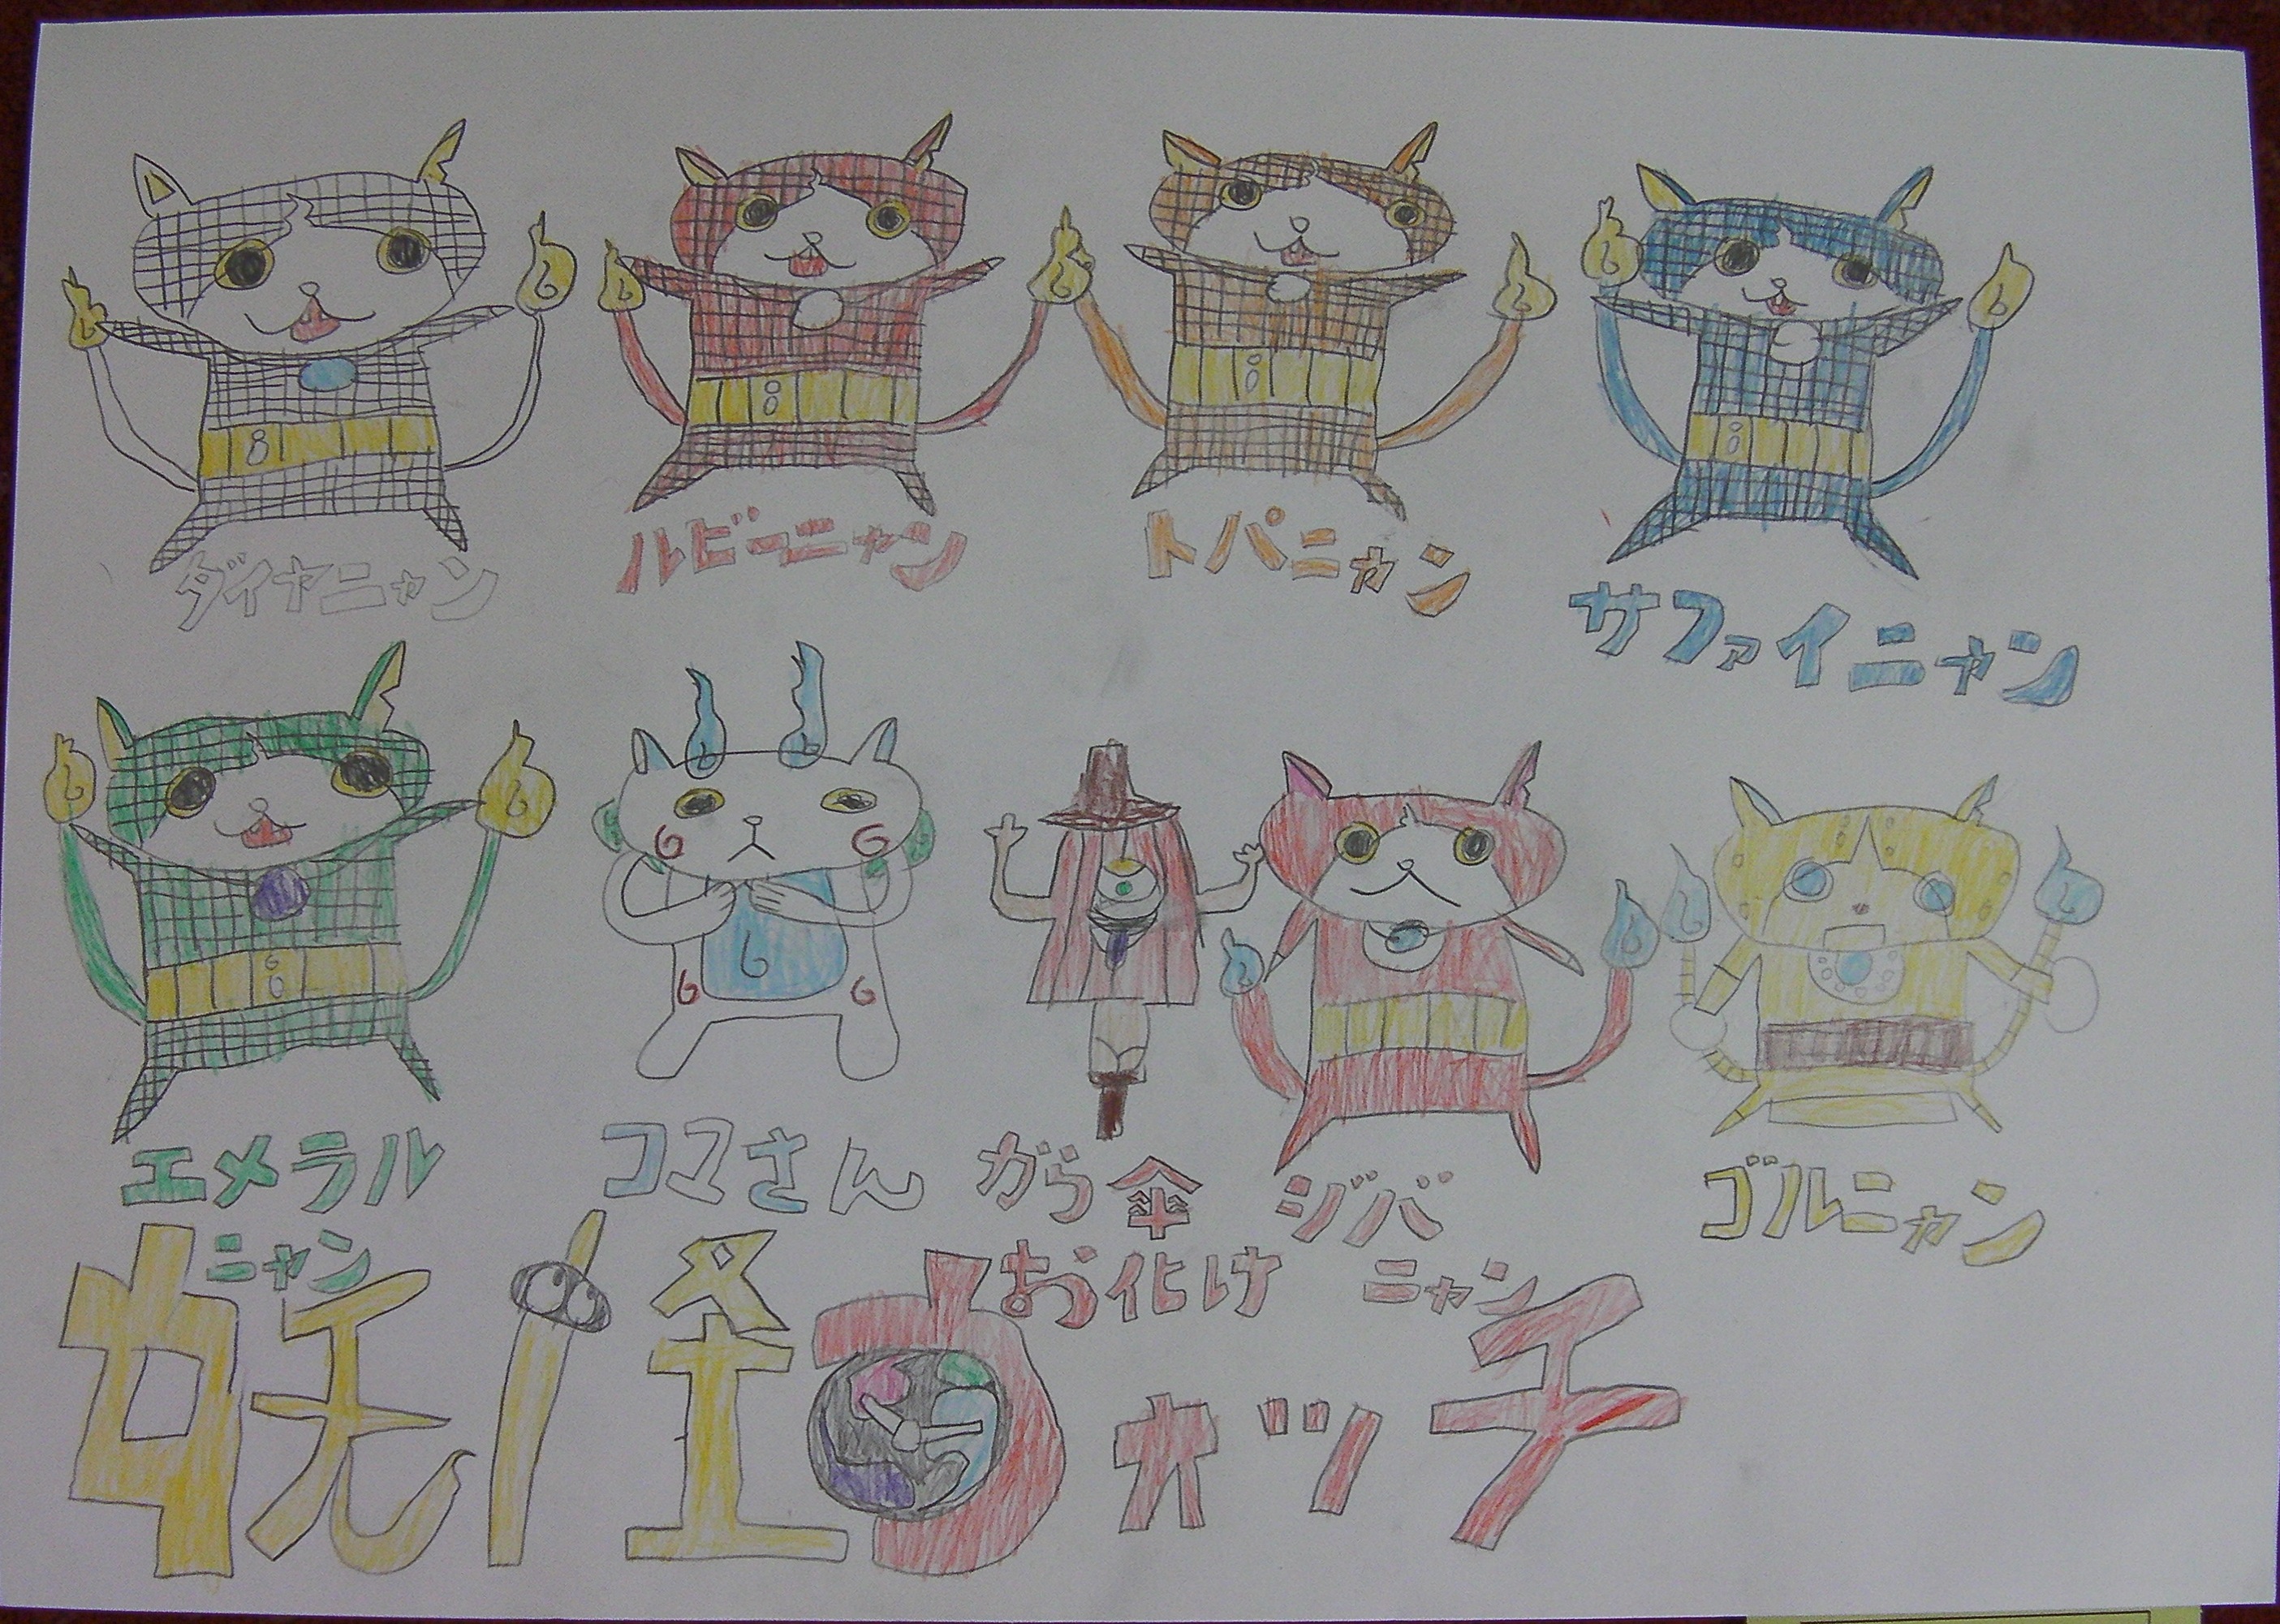 ダイヤニャン
ルビーニャン
トパニャン
サファイニャン
エメラル
ニャン
コマさん
がら傘
お化け
ジバ
ニャン
ゴルニャン
妖怪ウォッチ